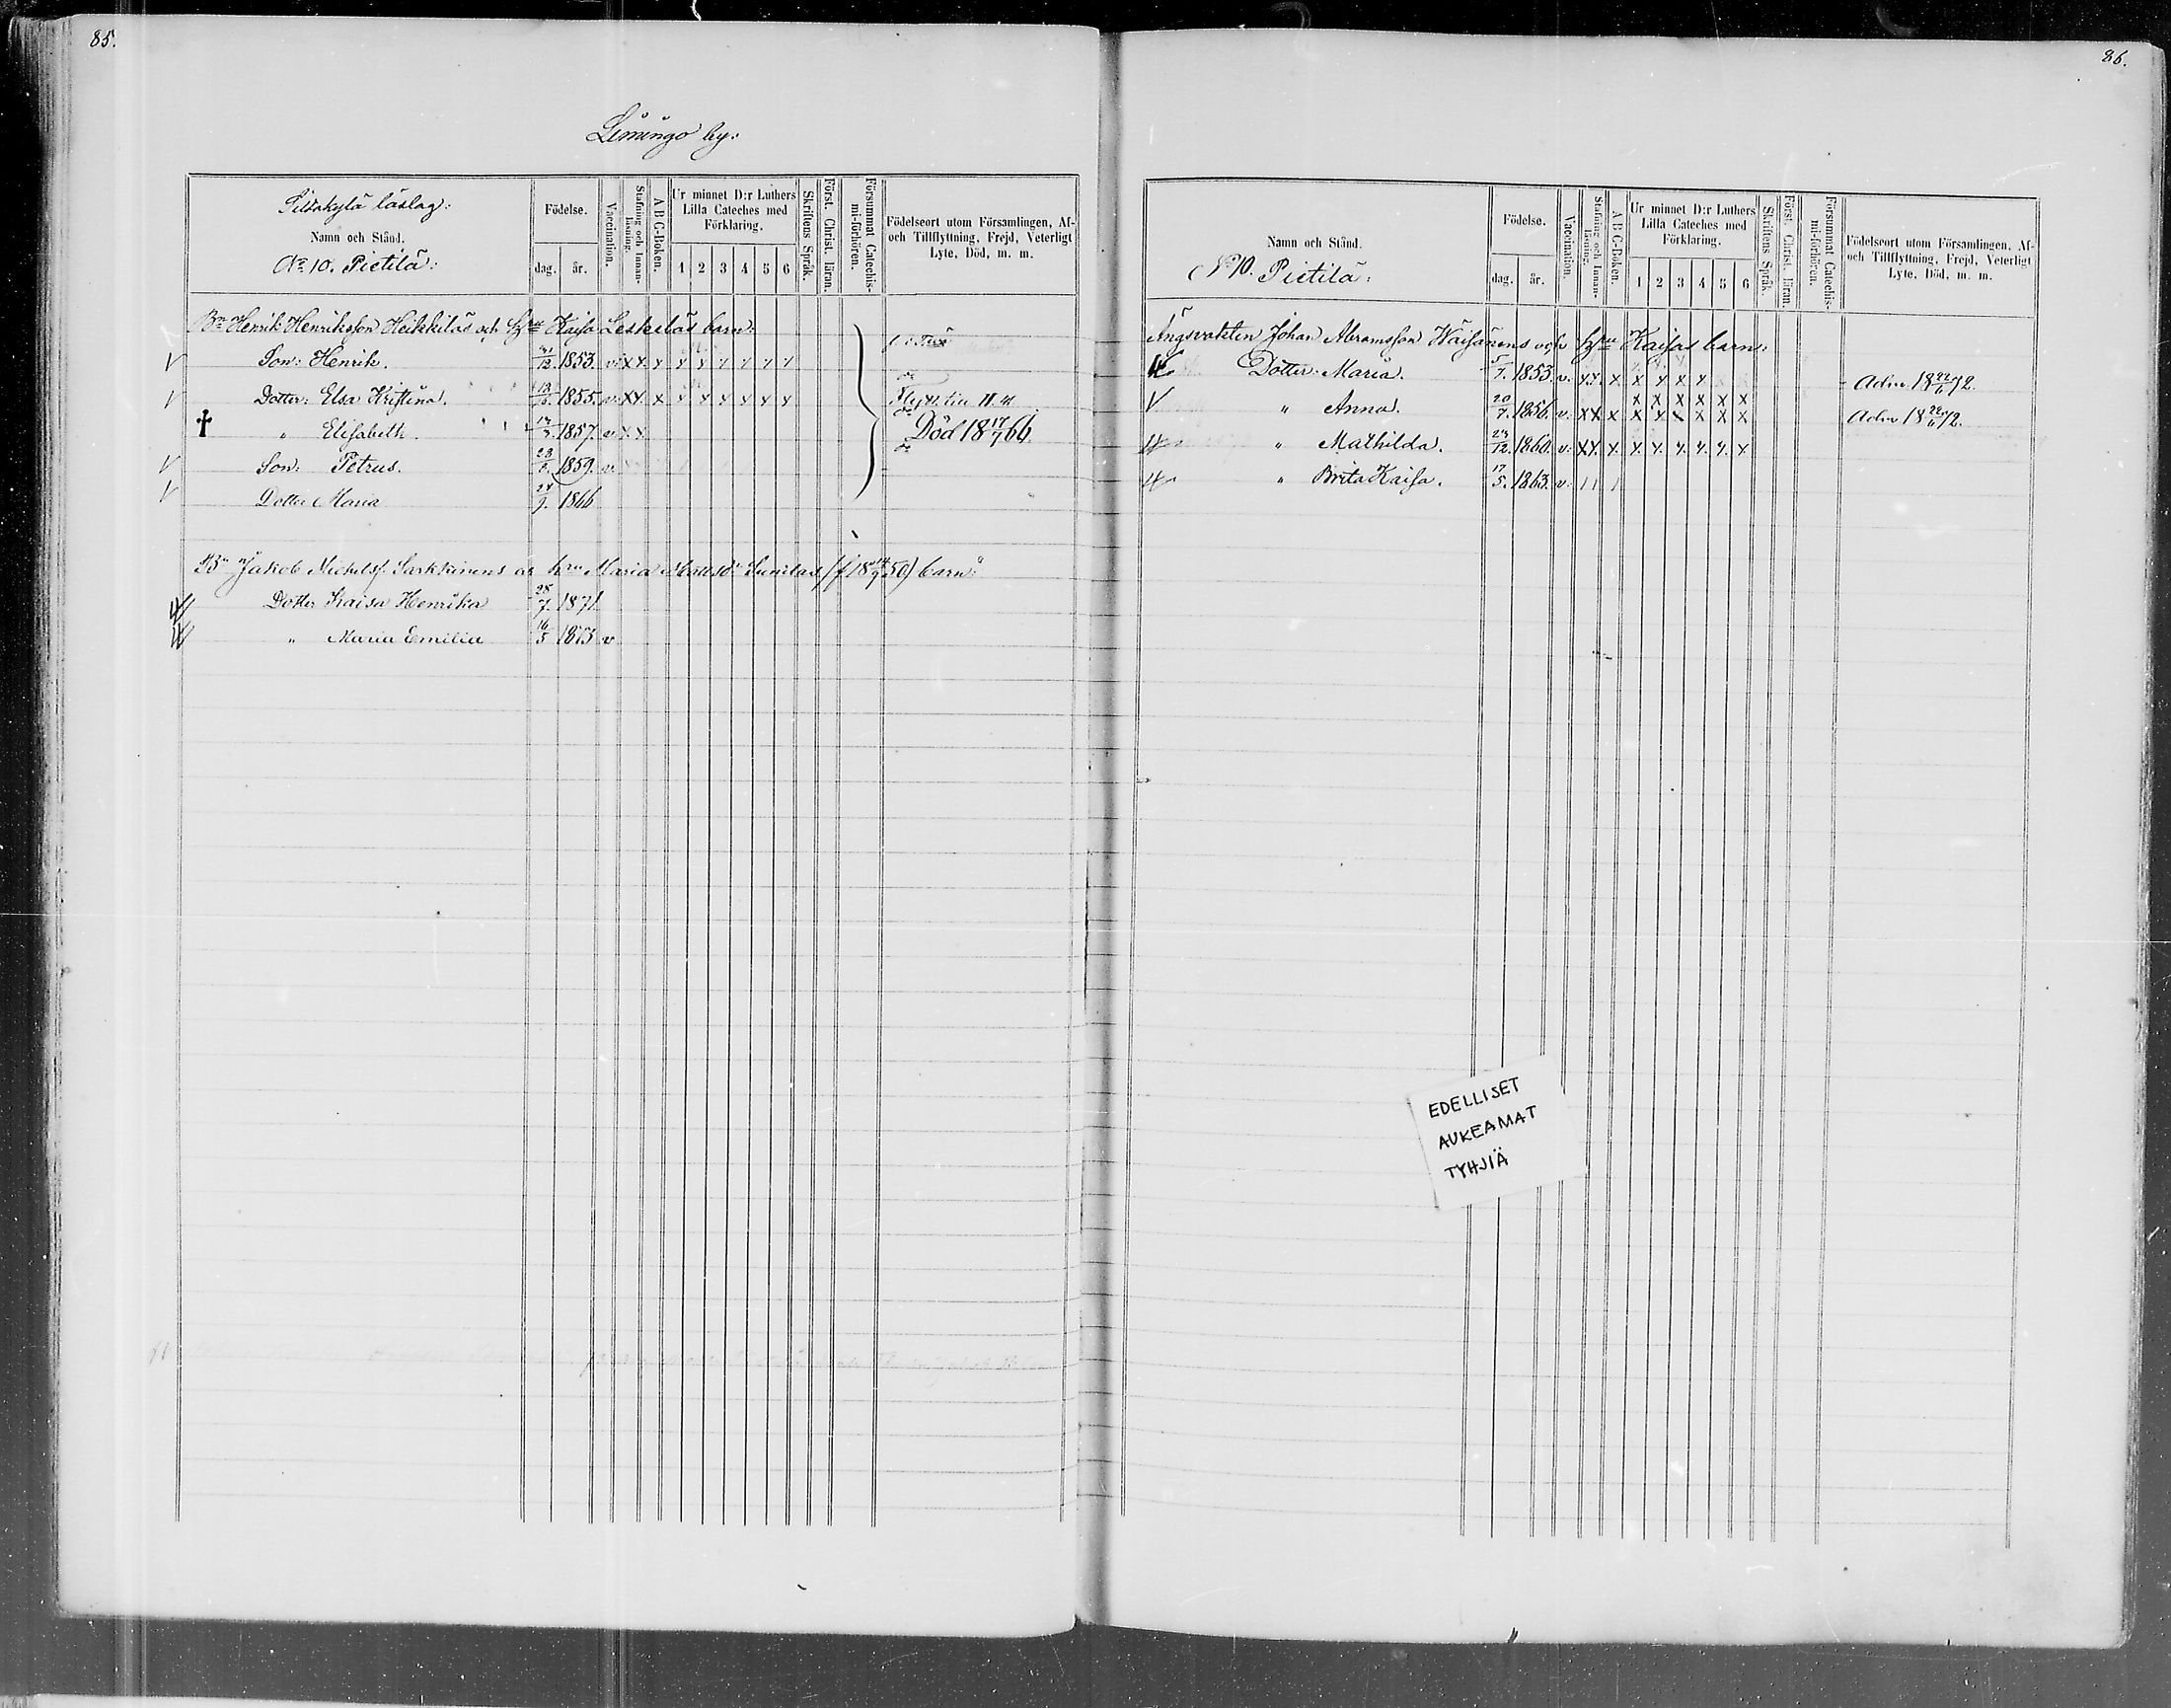 85.
Limingo by:
läslag:
Namn och Stånd.
No 10. Pietilä:
Födelse.
dag. år.
Vaccination.
Stafning och Innan-läsning.
A B C-Boken.
Ur minnet D:r Luthers Lilla Cateches med Förklaring.
1 2 3 4 5 6
Skriftens Språk.
Först. Christ. läran.
Försummat Catechis-mi-förhören.
Födelseort utom Församlingen, Af- och Tillflyttning, Frejd, Veterligt Lyte, Död, m. m.
Bn Henrik Henriksson Heikkiläs och Hu Kaisa Leskeläs barn:
Son: Henrik. 31/12. 1853. v. x x x x x x x x x
Dotter: Elsa Kristina. 1855. v. x x x x x x x x x
" Elisabeth. 17/3. 1857. v. x x Död 18 17/7 66.
Son: Petrus. 1859. v.
Dotter Maria 24/9. 1866
Jakob Michelsf. Sarkkinens Maria barn:
Dotter Kaisa Henrika 28/7. 1871.
" Maria Emilia 16/5 1873 v
86.
Namn och Stånd.
No 10. Pietilä:
Födelse.
dag. år.
Vaccination.
Stafning och Innan-läsning.
A B C-Boken.
Ur minnet D:r Luthers Lilla Cateches med Förklaring.
1 2 3 4 5 6
Skriftens Språk.
Först. Christ. läran.
Försummat Catechis-mi-förhören.
Födelseort utom Församlingen, Af- och Tillflyttning, Frejd, Veterligt Lyte, Död, m. m.
Ängsvakten Johan Abramsson Wäisänens och Hu Kaisas barn:
Dotter: Maria. 5/7. 1853. v. x x x x x x x
" Anna. 20/7. 1856. v. x x x x x x x x x
" Mathilda. 23/12. 1860. v. x x x x x x x x x
" Brita Kaisa. 17/5. 1863. v. / / /
EDELLISET
AUKEAMAT
TYHJIÄ